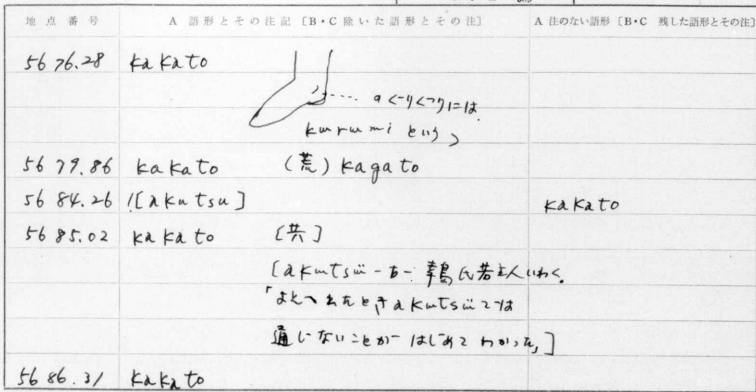 地点番号 A 語形とその注記〔B・C 除いた語形とその注〕 A 注のない語形〔B・C 残した語形とその注〕
5676.28 kakato
..... のくりくりには
kɯrɯmi という
5679.86 kakato (荒) kagato
5684.26 [akutsu] kakato
5685.02 kakato [共]
[akɯtsɯ̈ 氏若主人いわく。
「よそへ出たとき akɯtsɯ̈ では
通じないことが はじめて わかった」]
5686.31 kakato